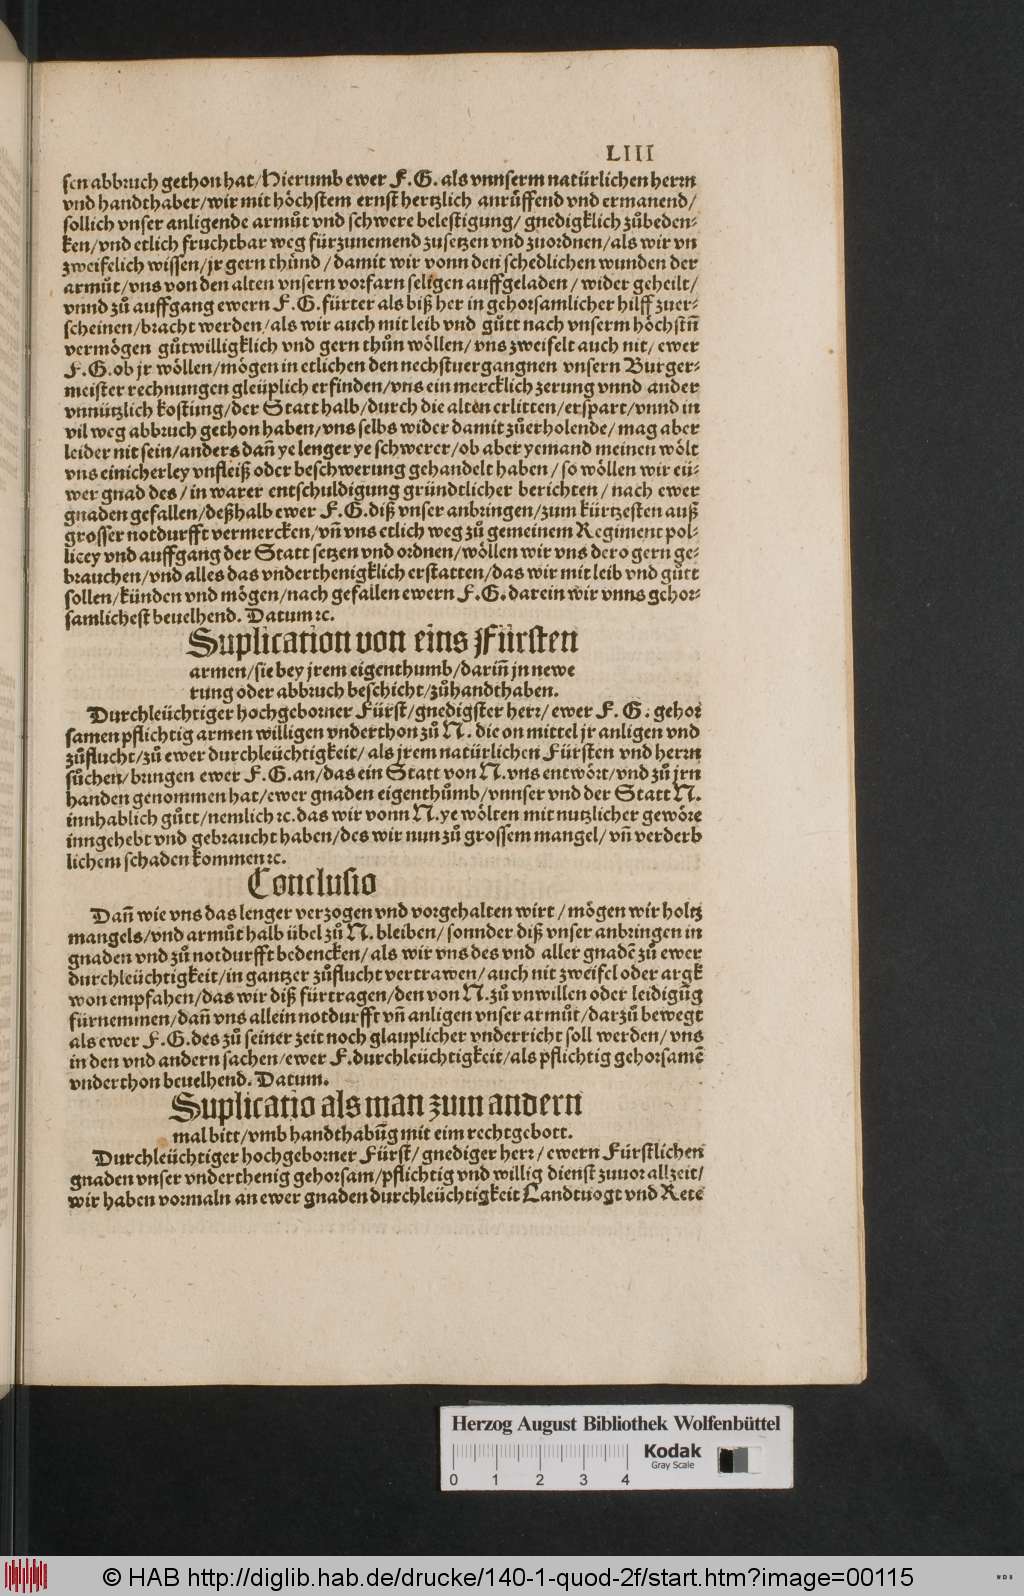 LIII
sen abbruch gethon hat/Hierumb ewer F.G. als vnnserm natürlichen herrn
vnd handthaber/wir mit höchstem ernst hertzlich anrůffend vnd ermanend/
sollich vnser anligende armůt vnd schwere belestigung/ gnedigklich zůbeden⸗
ken/vnd etlich fruchtbar weg fürzunemend zusetzen vnd zuordnen/als wir vn
zweifelich wissen/jr gern thůnd/damit wir vonn den schedlichen wunden der
armůt/vns von den alten vnsern vorfarn seligen auffgeladen/wider geheilt/
vnnd zů auffgang ewern F.G.fürter als biß her in gehorsamlicher hilff zuer⸗
scheinen/bracht werden/als wir auch mit leib vnd gůtt nach vnserm höchstñ
vermögen gůtwilligklich vnd gern thůn wöllen/vns zweifelt auch nit/ewer
F.G.ob jr wöllen/mögen in etlichen den nechstuergangnen vnsern Burger⸗
meister rechnungen gleüplich erfinden/vns ein mercklich zerung vnnd ander
vnnützlich kostung/der Statt halb/durch die alten erlitten/erspart/vnnd in
vil weg abbruch gethon haben/vns selbs wider damit zůerholende/mag aber
leider nit sein/anders dañ ye lenger ye schwerer/ob aber yemand meinen wölt
vns einicherley vnfleiß oder beschwerung gehandelt haben/so wöllen wir eü⸗
wer gnad des/in warer entschuldigung gründtlicher berichten/nach ewer
gnaden gefallen/deßhalb ewer F.G.diß vnser anbringen/zum kürtzesten auß
grosser notdurfft vermercken/vñ vns etlich weg zů gemeinem Regiment pol⸗
licey vnd auffgang der Statt setzen vnd ordnen/wöllen wir vns dero gern ge⸗
brauchen/vnd alles das vnderthenigklich erstatten/das wir mit leib vnd gůtt
sollen/künden vnd mögen/nach gefallen ewern F.G.darein wir vnns gehor⸗
samlichest beuelhend. Datum ꝛc.
Suplication von eins Fürsten
armen/sie bey jrem eigenthumb/dariñ jn newe
rung oder abbruch beschicht/zůhandthaben.
Durchleüchtiger hochgeborner Fürst/gnedigster herr/ewer F.G. gehor
samen pflichtig armen willigen vnderthon zů N. die on mittel jr anligen vnd
zůflucht/zů ewer durchleüchtigkeit/als jrem natürlichen Fürsten vnd herrn
sůchen/bringen ewer F.G.an/das ein Statt von N.vns entwört/vnd zů jrn
handen genommen hat/ewer gnaden eigenthůmb/vnnser vnd der Statt N.
innhablich gůtt/nemlich ꝛc.das wir vonn N.ye wölten mit nutzlicher gewöre
inngehebt vnd gebraucht haben/des wir nun zů grossem mangel/vñ verderb
lichem schaden kommen ꝛc.
Conclusio
Dañ wie vns das lenger verzogen vnd vorgehalten wirt/mögen wir holtz
mangels/vnd armůt halb übel zů N.bleiben/sonnder diß vnser anbringen in
gnaden vnd zů notdurfft bedencken/als wir vns des vnd aller gnadē zů ewer
durchleüchtigkeit/in gantzer zůflucht vertrawen/auch nit zweifel oder argk
won empfahen/das wir diß fürtragen/den von N.zů vnwillen oder leidigūg
fürnemmen/dañ vns allein notdurfft vñ anligen vnser armůt/darzů bewegt
als ewer F.G.des zů seiner zeit noch glauplicher vnderricht soll werden/vns
in den vnd andern sachen/ewer F.durchleüchtigkeit/als pflichtig gehorsamē
vnderthon beuelhend. Datum.
Suplicatio als man zum andern
mal bitt/vmb handthabūg mit eim rechtgebott.
Durchleüchtiger hochgeborner Fürst/gnediger herr/ewern Fürstlichen
gnaden vnser vnderthenig gehorsam/pflichtig vnd willig dienst zuuor allzeit/
wir haben vormaln an ewer gnaden durchleüchtigkeit Landtuogt vnd Rete
Herzog August Bibliothek Wolfenbüttel
Kodak
Gray Scale
0 1 2 3 4
© HAB http://diglib.hab.de/drucke/140-1-quod-2f/start.htm?image=00115